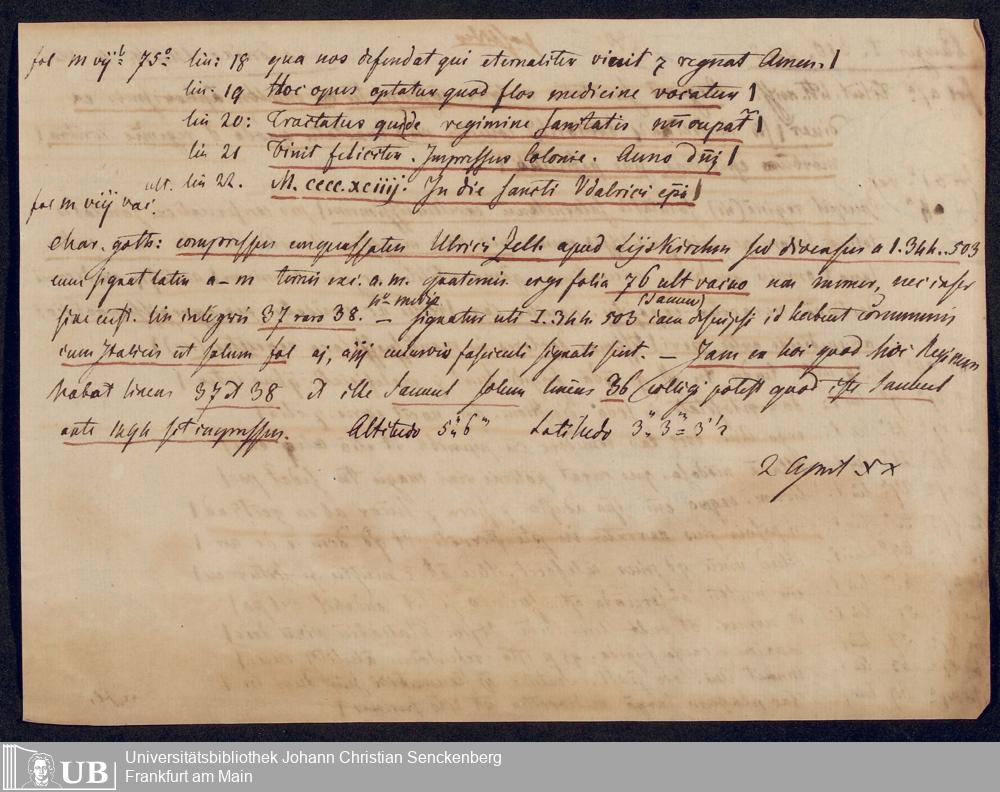 fol m vijb. 75o. lin: 18 qua nos difendat qui eternaliter vivit ⁊ regnat Amen. |
lin. 19 Hoc opus optatur quod flos medicine vocatur |
lin 20: Tractatus qui de regimine sanitatis nūcupat' |
lin 21 Finit feliciter. Impressus Colonie. Anno Dnj |
ult. lin 22. M.cccc.xciiij. In die sancti Vdalrici epi |
fol m viij vac.
Char. goth: compressus Ulrici Zell apud Lijskirchen sed diversus a I. 344. 503
cum signat latin a–m ternis exc. a. m. quaternis ergo folia 76 ult vacuo non numer, nec inscr
sine cust. lin integris 37 raro 38. – signatur uti I. 344. 503 (Samuel) jam descripsi id habent communis
cum Italicis ut solum fol aj, aijj fasciculi signati sint. – Jam ex hoi quod hoc Regimen
habat lineas 37 et 38 et ille Samuel solum lineas 36 colligi potest quod iste Samuel
ante 1494 sit impressus. Altitudo 5" 6"' Latitudo 3" 3"' = 3 1/2
2 April XX
Universitätsbibliothek Johann Christian Senckenberg
UB Frankfurt am Main